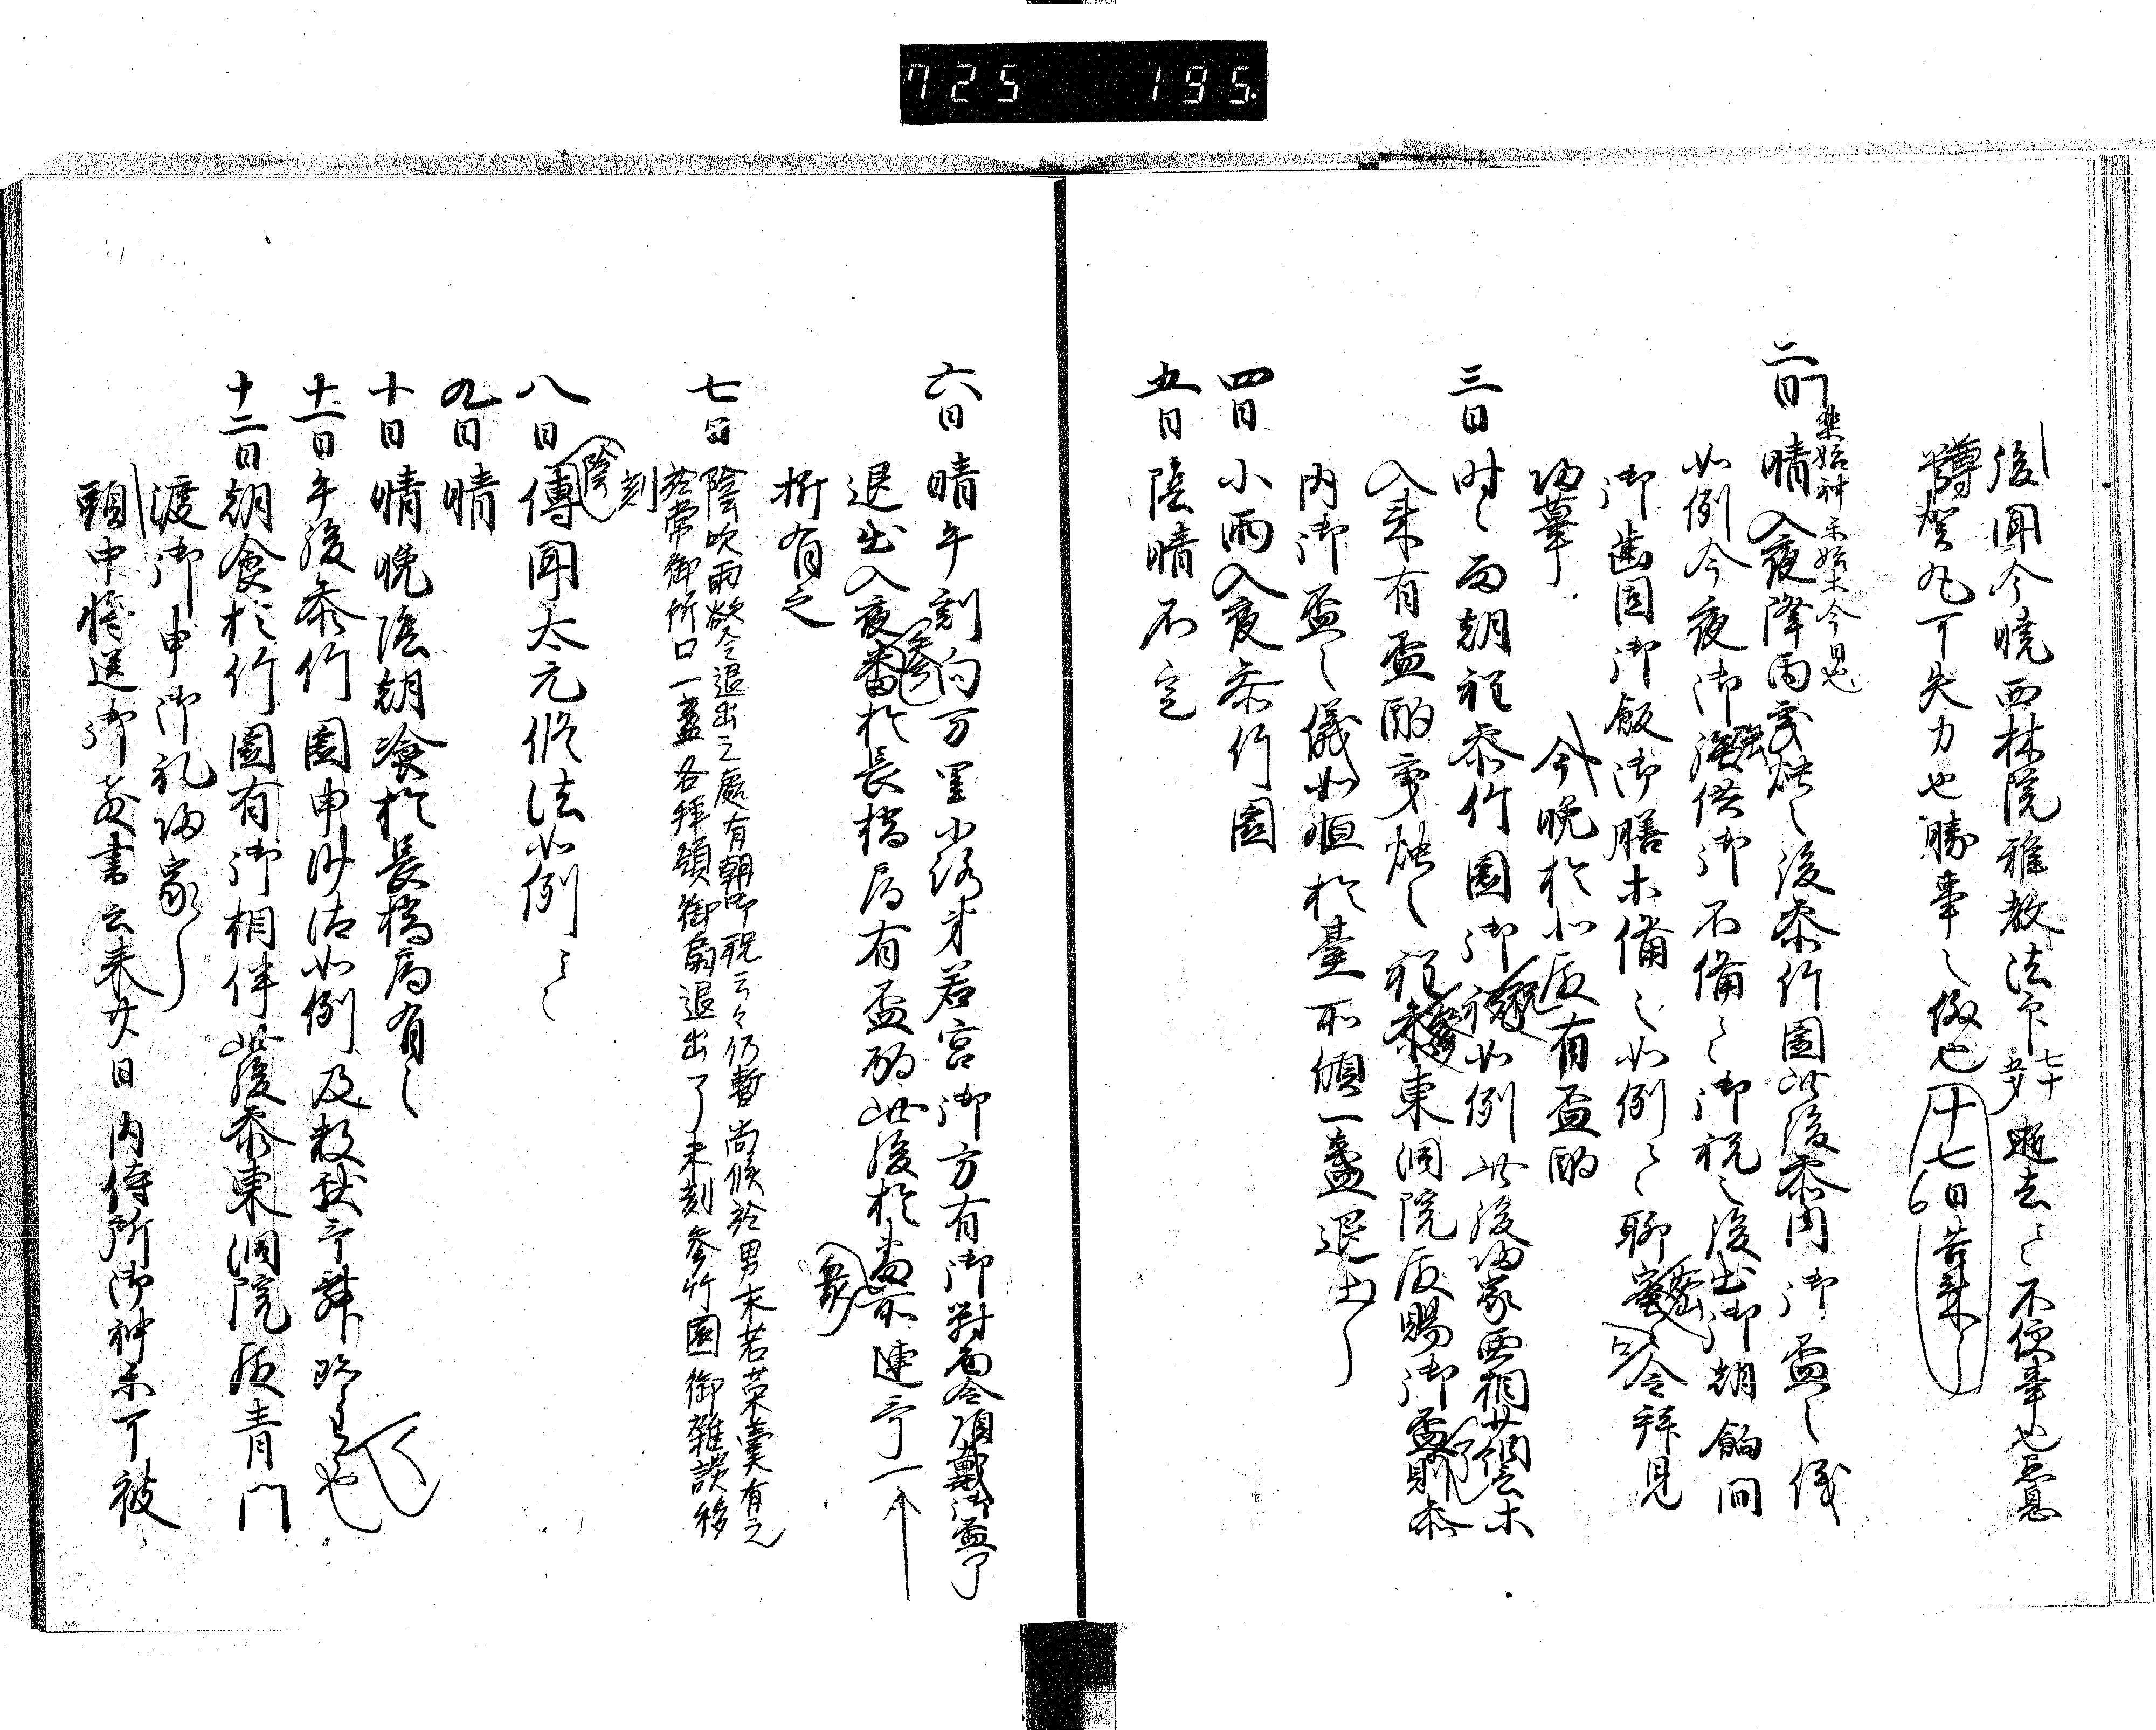 725 195
後聞今暁西林院雅教法印七十五才逝去云々不便事也愚息
賀丸可失力也勝事之儀也十七日者歟
楽始神楽始等今日也
二日晴入夜降雨乗燭之後参竹園此後参内御盃之儀
如例今夜御強供御不備云々御祝之後出御朝餉間
御歯固御飯御膳等備之如例云々聊密々令拝見
帰畢
今晩於小殿有盃酌
三日時々雨朝程参竹園御祝如例此後帰家
入来有盃酌乗燭之程参東洞院殿賜御盃則参
内御盃之儀如恒於臺所傾一盞退出
四日小雨入夜参竹園
五日陰晴不定
六日晴午刻向万里小路弟若宮御方有御対面令頂戴御盃了
退出入夜参番於長橋局有盃酌此後於番衆所連句一
折有之
七日陰吹雨欲令退出之處有朝御祝云々仍暫尚候於男末若菜羹有之
於常御所口一盞各拝領御扇退出了未刻参竹園御雑談移
刻
八日陰傳聞太元修法如例云々
九日晴
十日晴晩陰朝飡於長橋局有之
十一日午後参竹園申沙汰如例及数献
十二日朝食於竹園有御相伴此後参東洞院殿青門
渡御申御礼帰家
頭中将送御教書云来廿日内侍所御神楽可被